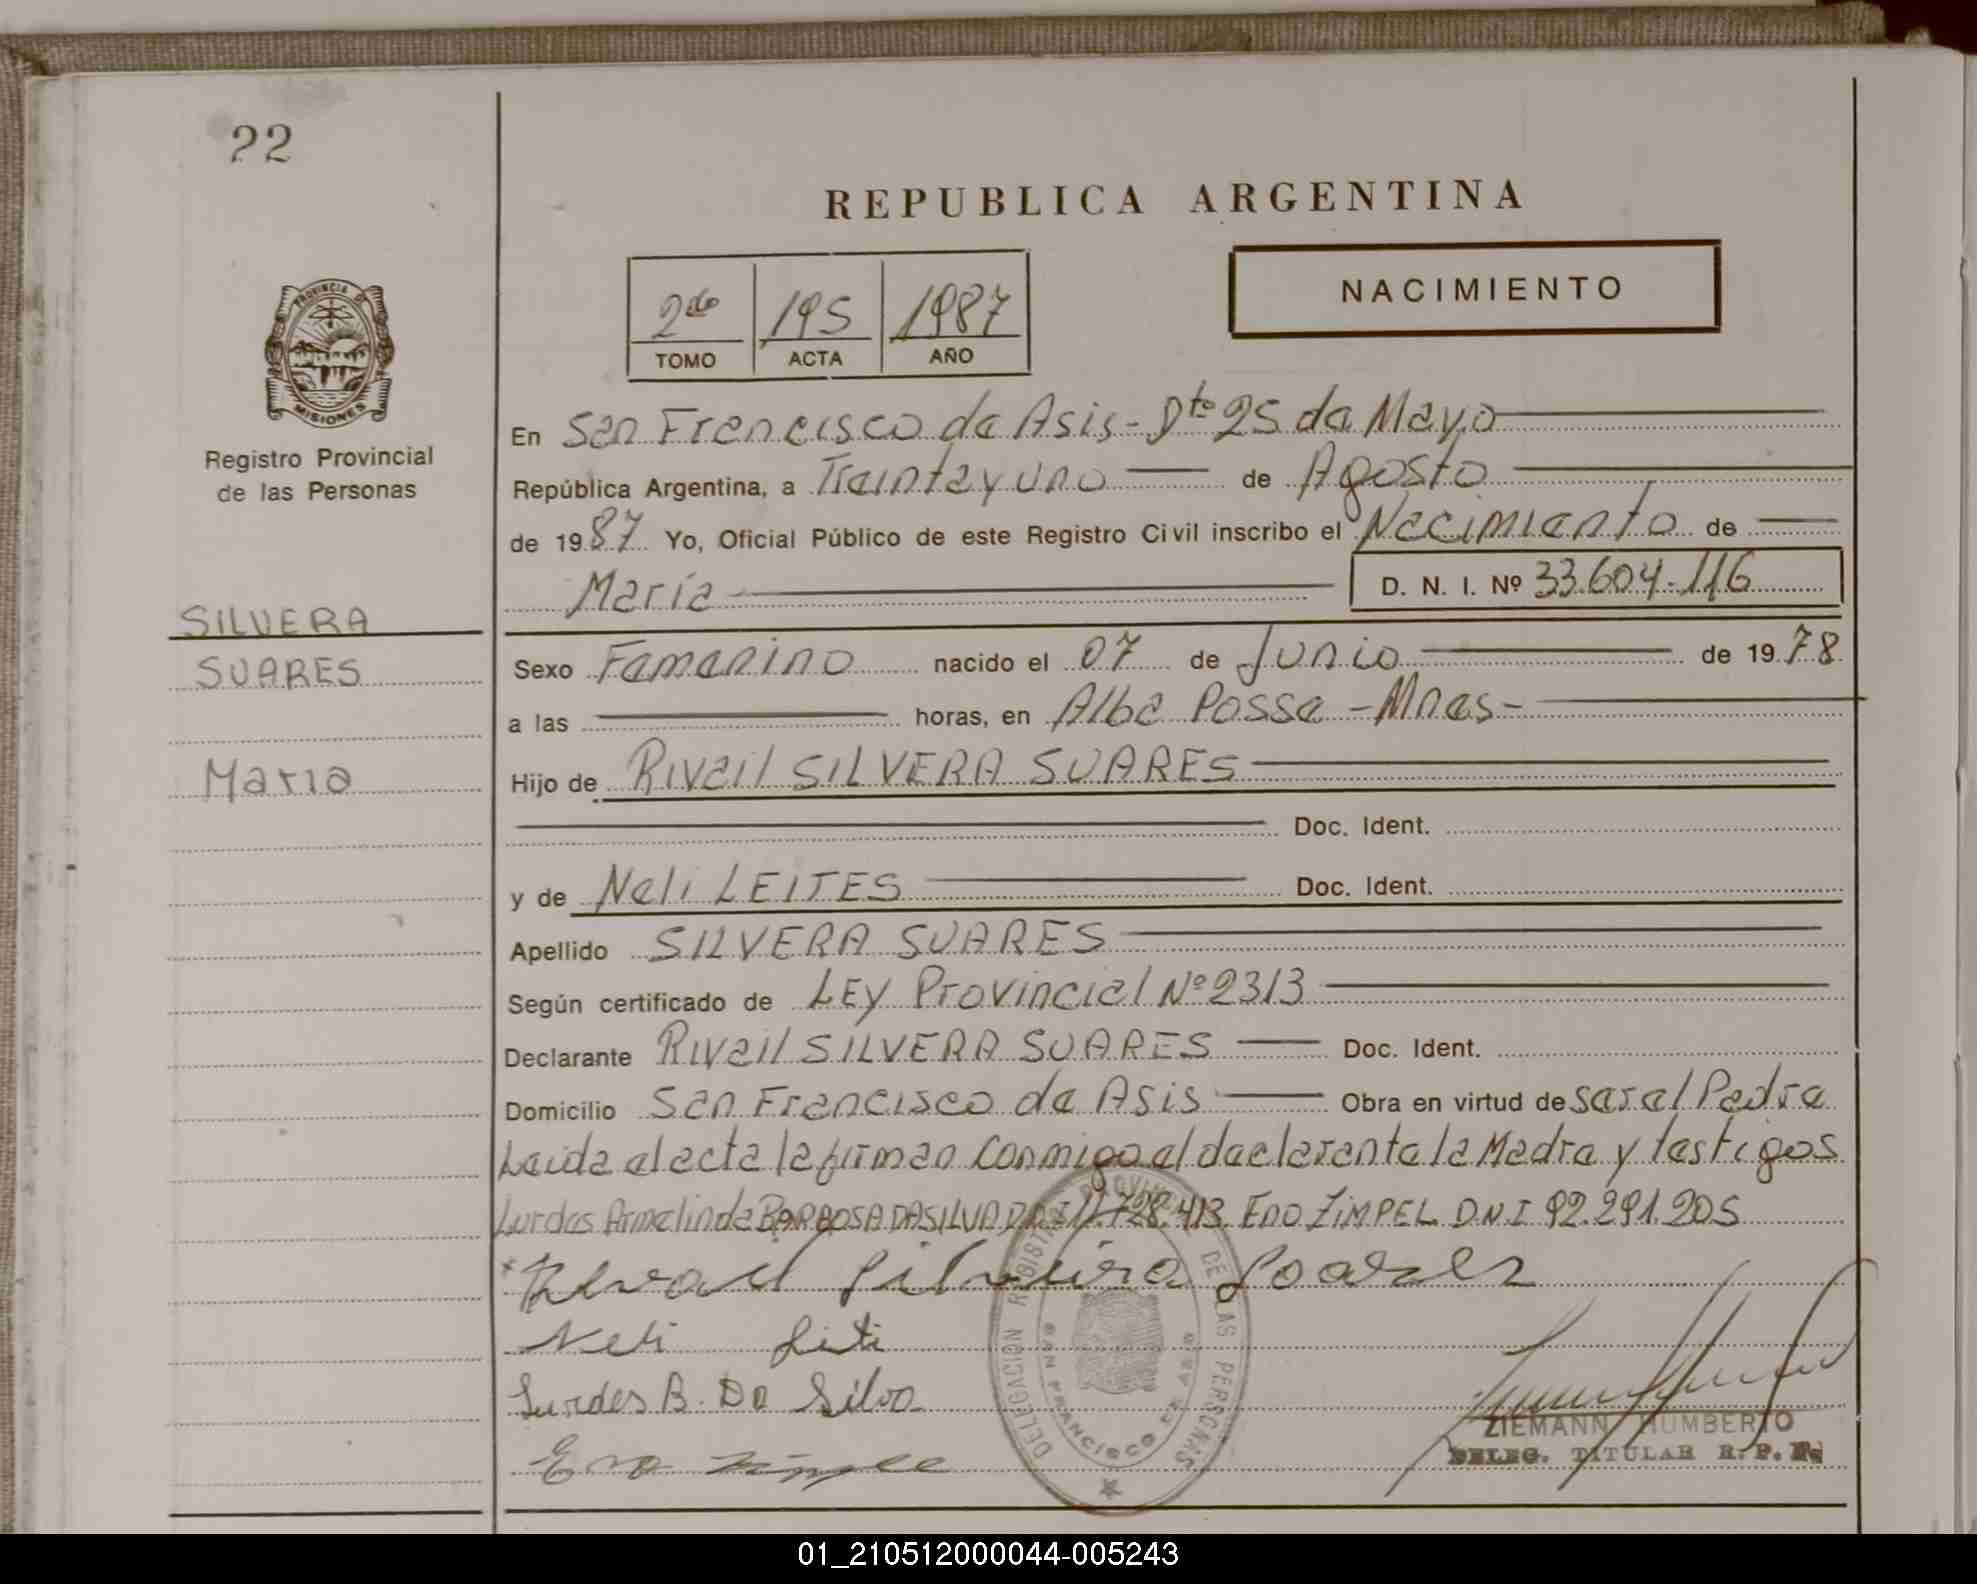 22
REPUBLICA ARGENTINA
NACIMIENTO
2do 195 1987
TOMO ACTA AÑO
PROVINCIA DE MISIONES
Registro Provincial
de las Personas
En San Francisco de Asis - Dto 25 de Mayo
República Argentina, a Treinta y uno de Agosto
de 1987 Yo, Oficial Público de este Registro Civil inscribo el Nacimiento de
María D. N. I. Nº 33.604.116
SILVERA
SUARES
Maria
Sexo Femenino nacido el 07 de Junio de 1978
a las horas, en Alba Posse - Mnes -
Hijo de Rivail SILVERA SUARES
Doc. Ident.
y de Neli LEITES Doc. Ident.
Apellido SILVERA SUARES
Según certificado de LEy Provincial Nº 2313
Declarante Rivail SILVERA SUARES Doc. Ident.
Domicilio San Francisco de Asis Obra en virtud de ser el Padre
Leida el acta la firman conmigo el declarante la Madre y testigos
Lurdes Armelinda BARBOSA DA SILVA D.N.I 11.728.413. Eno ZIMPEL D.N.I 92.291.205
Silveira Soares
Neli
Lurdes B. Da Silva
Eno
DELEGACION REGISTRO PROVINCIAL DE LAS PERSONAS
SAN FRANCISCO DE ASIS
ZIEMANN HUMBERTO
DELEG. TITULAR R. P. P.
01_210512000044-005243